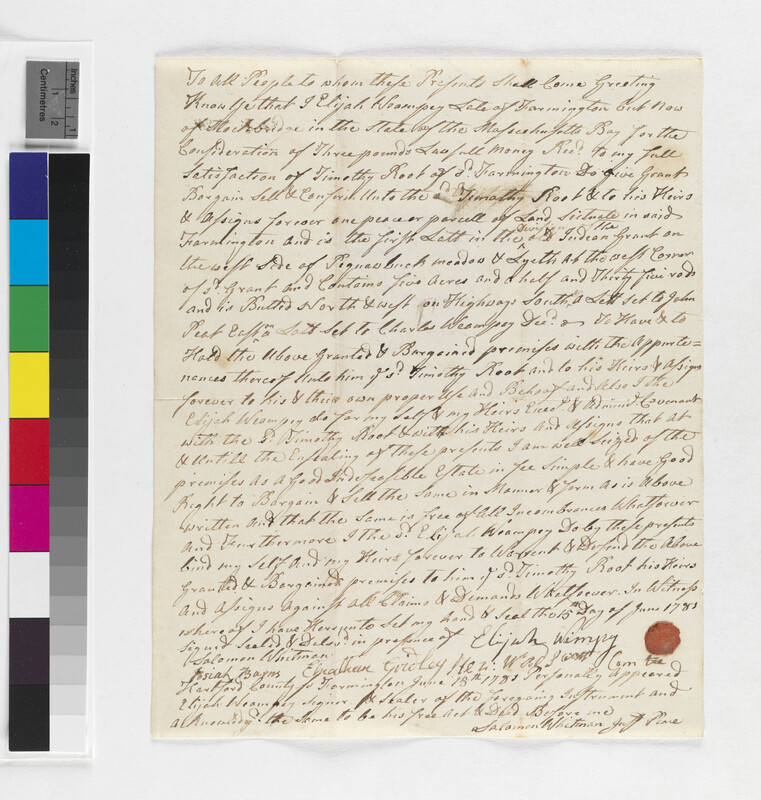 Inches
1
Centimetres
1
2
To All People to whom these Presents Shall Come Greeting
Know Ye that I Elijah Weampey Late of Farmington but Now
of Stockbridge in the State of the Massechusetts Bay for the
Consideration of Three pounds Lawfull Money Recd to my full
Satisfaction of Timothy Root of sd Farmington Do Give Grant
Bargain Sell & Confirm Unto the sd Timothy Root & to his Heirs
& Assigns forever one peace or parcell of Land Scituate in said
Farmington and is the first Lott in the division of the old Indean Grant on
the west Side of Pequawbuck meadow & Lyeth At the west Corner
of sd Grant and Contains five Acres and a half and Thirty five rods
and is Butted North & west on Highways South a Lott set to John
Peat East on Lott set to Charles Weampey Decd To Have & to
Hold the Above Granted & Bargained premises with the Appurte=
nances thereof Unto him ye sd Timothy Root and to his Heirs & Assigns
forever to his & their own proper Use And Behoof and Also I the
Elijah Weampey do for my Self & my Heirs Execrs & Adminrs Covenant
with the sd Timothy Root & with his Heirs And Assigns that at
& Untill the Ensealing of these presents I am well Seized of the
premises As a Good Indefeasible Estate in fee Simple & have Good
Right to Bargain & Sell the Same in Manner & form as is Above
written And that the Same is free of All Incombrances Whatsoever
And Furthermore I the sd Elijah Weampey Do by these presents
bind my Self And my Heirs forever to Warrent & Defend the Above
Granted & Bargained premises to him ye sd Timothy Root his Heirs
And Assigns Against all Claims & Demands Whatsoever. In Witness
whereof I have Hereunto Set my hand & Seal the 15th Day of June 1783
Signd Seald & Delivd in presence of Elijah Wimpey
Solomon Whitman
Elnathan Gridley
Hartford County ss Farmington June 18th 1783 Personaly Appeared
Elijah Weampey Signer & Sealer of the foregoing Instrument and
acknowledgd the Same to be his free Act & Deed Before me
Solomon Whitman Just Peace